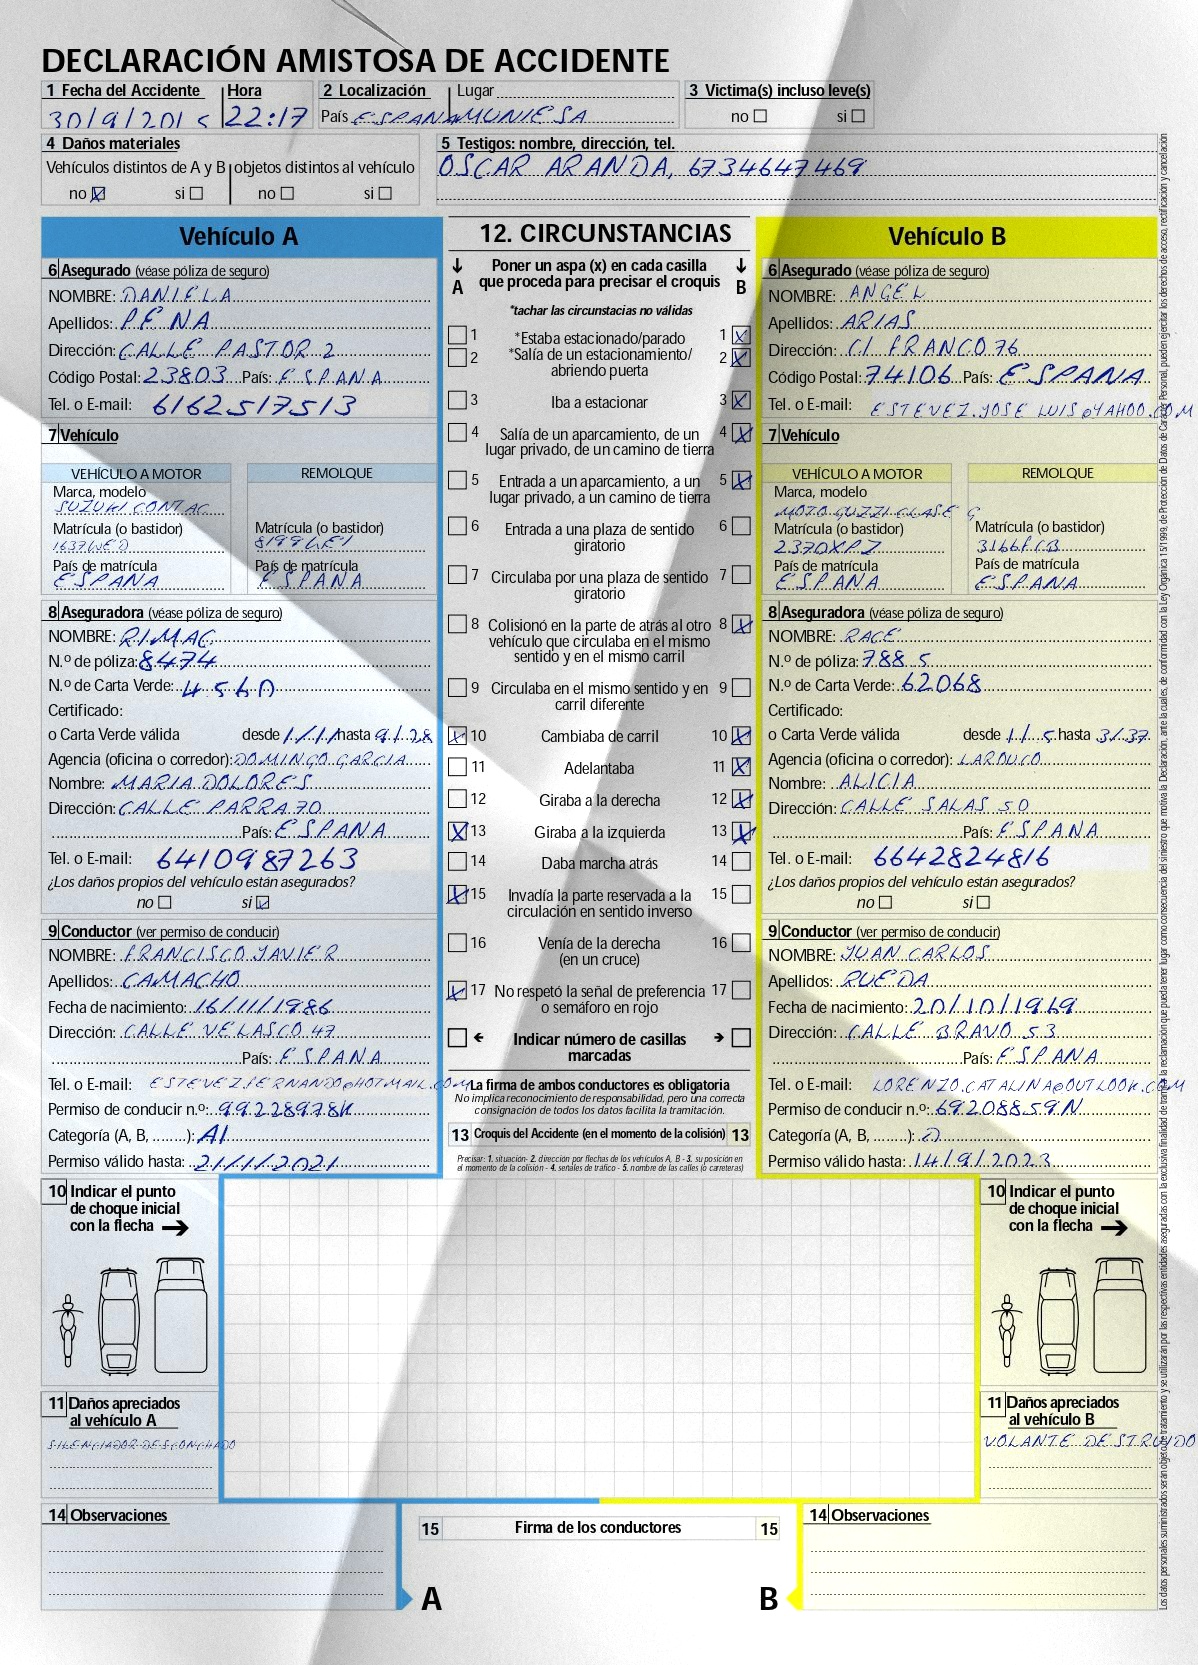 DECLARACIÓN AMISTOSA DE ACCIDENTE
1 Fecha del Accidente Hora 2 Localización Lugar 3 Victima(s) incluso leve(s)
30/9/2015 22:17 País ESPANA MUNIESA no si
4 Daños materiales
Vehículos distintos de A y B objetos distintos al vehículo
no X si no si
5 Testigos: nombre, dirección, tel.
OSCAR ARANDA, 6734647469
Vehículo A
6 Asegurado (véase póliza de seguro)
NOMBRE: DANIELA
Apellidos: PENA
Dirección: CALLE PASTOR 2
Código Postal: 23803 País: ESPANA
Tel. o E-mail: 6162517513
7 Vehículo
VEHÍCULO A MOTOR REMOLQUE
Marca, modelo
SUZUKI CONTAC
Matrícula (o bastidor) Matrícula (o bastidor)
1637WED 8199WEI
País de matrícula País de matrícula
ESPANA ESPANA
8 Aseguradora (véase póliza de seguro)
NOMBRE: RIMAC
N.º de póliza: 8474
N.º de Carta Verde: 4560
Certificado:
o Carta Verde válida desde 1/1/1 hasta 9/1/28
Agencia (oficina o corredor): DOMINGO GARCIA
Nombre: MARIA DOLORES
Dirección: CALLE PARRA 70
País: ESPANA
Tel. o E-mail: 6410987263
¿Los daños propios del vehículo están asegurados?
no si X
9 Conductor (ver permiso de conducir)
NOMBRE: FRANCISCO JAVIER
Apellidos: CAMACHO
Fecha de nacimiento: 16/11/1986
Dirección: CALLE VELASCO 47
País: ESPANA
Tel. o E-mail: ESTEVEZFERNANDO@HOTMAIL.COM
Permiso de conducir n.º: 99228978K
Categoría (A, B, ........): A1
Permiso válido hasta: 21/1/2021
12. CIRCUNSTANCIAS
A Poner un aspa (x) en cada casilla B
que proceda para precisar el croquis
*tachar las circunstacias no válidas
1 *Estaba estacionado/parado 1 X
2 *Salía de un estacionamiento/ 2 X
abriendo puerta
3 Iba a estacionar 3 X
4 Salía de un aparcamiento, de un 4 X
lugar privado, de un camino de tierra
5 Entrada a un aparcamiento, a un 5 X
lugar privado, a un camino de tierra
6 Entrada a una plaza de sentido 6
giratorio
7 Circulaba por una plaza de sentido 7
giratorio
8 Colisionó en la parte de atrás al otro 8 X
vehículo que circulaba en el mismo
sentido y en el mismo carril
9 Circulaba en el mismo sentido y en 9
carril diferente
X 10 Cambiaba de carril 10 X
11 Adelantaba 11 X
12 Giraba a la derecha 12 X
X 13 Giraba a la izquierda 13 X
14 Daba marcha atrás 14
X 15 Invadía la parte reservada a la 15
circulación en sentido inverso
16 Venía de la derecha 16
(en un cruce)
X 17 No respetó la señal de preferencia 17
o semáforo en rojo
Indicar número de casillas
marcadas
La firma de ambos conductores es obligatoria
No implica reconocimiento de responsabilidad, pero una correcta
consignación de todos los datos facilita la tramitación.
13 Croquis del Accidente (en el momento de la colisión) 13
Precisar: 1. situación- 2. dirección por flechas de los vehículos A, B - 3. su posición en
el momento de la colisión - 4. señales de tráfico - 5. nombre de las calles (o carreteras)
Vehículo B
6 Asegurado (véase póliza de seguro)
NOMBRE: ANGEL
Apellidos: ARIAS
Dirección: C/ FRANCO 76
Código Postal: 74106 País: ESPANA
Tel. o E-mail: ESTEVEZ.JOSE LUIS@YAHOO.COM
7 Vehículo
VEHÍCULO A MOTOR REMOLQUE
Marca, modelo
MOTO GUZZI CLASE G
Matrícula (o bastidor) Matrícula (o bastidor)
2370XPZ 3166FCB
País de matrícula País de matrícula
ESPANA ESPANA
8 Aseguradora (véase póliza de seguro)
NOMBRE: RACE
N.º de póliza: 7885
N.º de Carta Verde: 62068
Certificado:
o Carta Verde válida desde 1/1/5 hasta 3/37
Agencia (oficina o corredor): LARDUCO
Nombre: ALICIA
Dirección: CALLE SALAS 50
País: ESPANA
Tel. o E-mail: 6642824816
¿Los daños propios del vehículo están asegurados?
no si
9 Conductor (ver permiso de conducir)
NOMBRE: JUAN CARLOS
Apellidos: RUEDA
Fecha de nacimiento: 20/10/1969
Dirección: CALLE BRAVO 53
País: ESPANA
Tel. o E-mail: LORENZO.CATALINA@OUTLOOK.COM
Permiso de conducir n.º: 69208859N
Categoría (A, B, ........): D
Permiso válido hasta: 14/9/2023
10 Indicar el punto
de choque inicial
con la flecha
11 Daños apreciados
al vehículo A
SILENCIADOR DESCONCHADO
10 Indicar el punto
de choque inicial
con la flecha
11 Daños apreciados
al vehículo B
VOLANTE DESTRUIDO
14 Observaciones
15 Firma de los conductores 15
A B
14 Observaciones